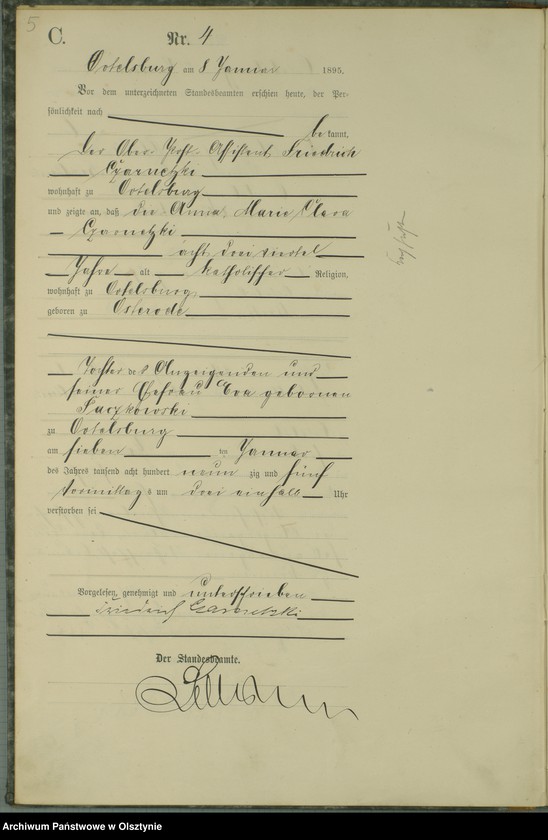 5
C.
Nr. 4
Ortelsburg am 8 Januar 1895.
Vor dem unterzeichneten Standesbeamten erschien heute, der Per-
sönlichkeit nach
be kannt,
der Ober-Post-Assistent Friedrich
Czarnetzki
wohnhaft zu Ortelsburg
und zeigte an, daß die Anna Marie Clara
Czarnetzki
acht drei viertel
Jahre alt katholischer Religion,
wohnhaft zu Ortelsburg
geboren zu Osterode
Tochter des Anzeigenden und
seiner Ehefrau Eva gebornen
zu Ortelsburg
am sieben ten Januar
des Jahres tausend acht hundert neun zig und fünf
Vormittags um drei einhalb Uhr
verstorben sei
Vorgelesen, genehmigt und unterschrieben
Friedrich Czarnetzki
Der Standesbeamte.
Archiwum Państwowe w Olsztynie